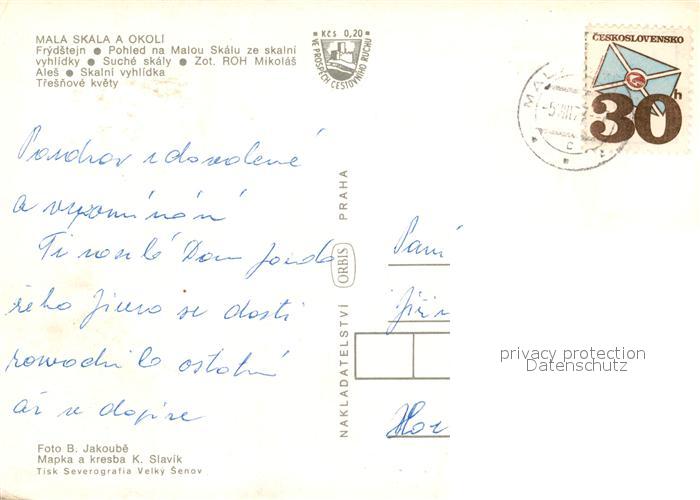 MALÁ SKÁLA A OKOLÍ
Frýdštejn ● Pohled na Malou Skálu ze skalní
vyhlídky ● Suché skály ● Zot. ROH Mikoláš
Aleš ● Skalní vyhlídka
Třešňové květy
Kčs 0,20
VE PROSPĚCH CESTOVNÍHO RUCHU
ČESKOSLOVENSKO
30h
MALÁ
Pozdrav z dovolené
a vzpomínání
Ti posílá
se dosti
ostatní
až v dopise
Paní
Jiři
Hor
NAKLADATELSTVÍ ORBIS PRAHA
privacy protection
Datenschutz
Foto B. Jakoubě
Mapka a kresba K. Slavík
Tisk Severografia Velký Šenov